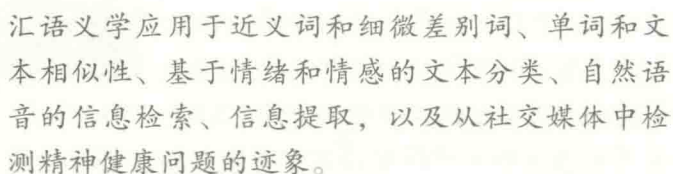 汇语义学应用于近义词和细微差别词、单词和文
本相似性、基于情绪和情感的文本分类、自然语
音的信息检索、信息提取，以及从社交媒体中检
测精神健康问题的迹象。